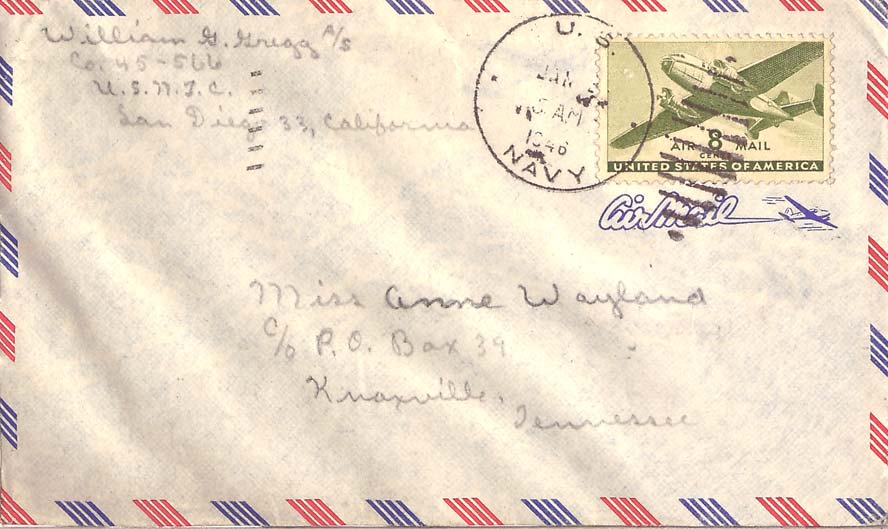 William G. Gregg A/S
Co. 45-566
U.S.N.T.C.
San Diego 33, California
U. S.
JAN
AM
1946
NAVY
AIR 8 MAIL
CENTS
UNITED STATES OF AMERICA
Air Mail
Miss Anne Wayland
c/o P.O. Box 39
Knoxville,
Tennessee